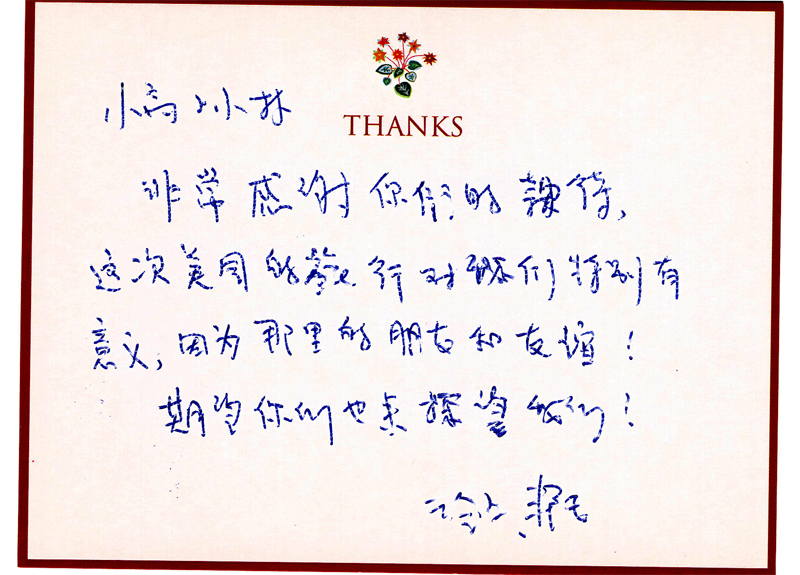 THANKS
小高、小林
非常感谢你们的款待,
这次美国的旅行对我们特别有
意义,因为那里的朋友和友谊!
期望你们也来探望我们!